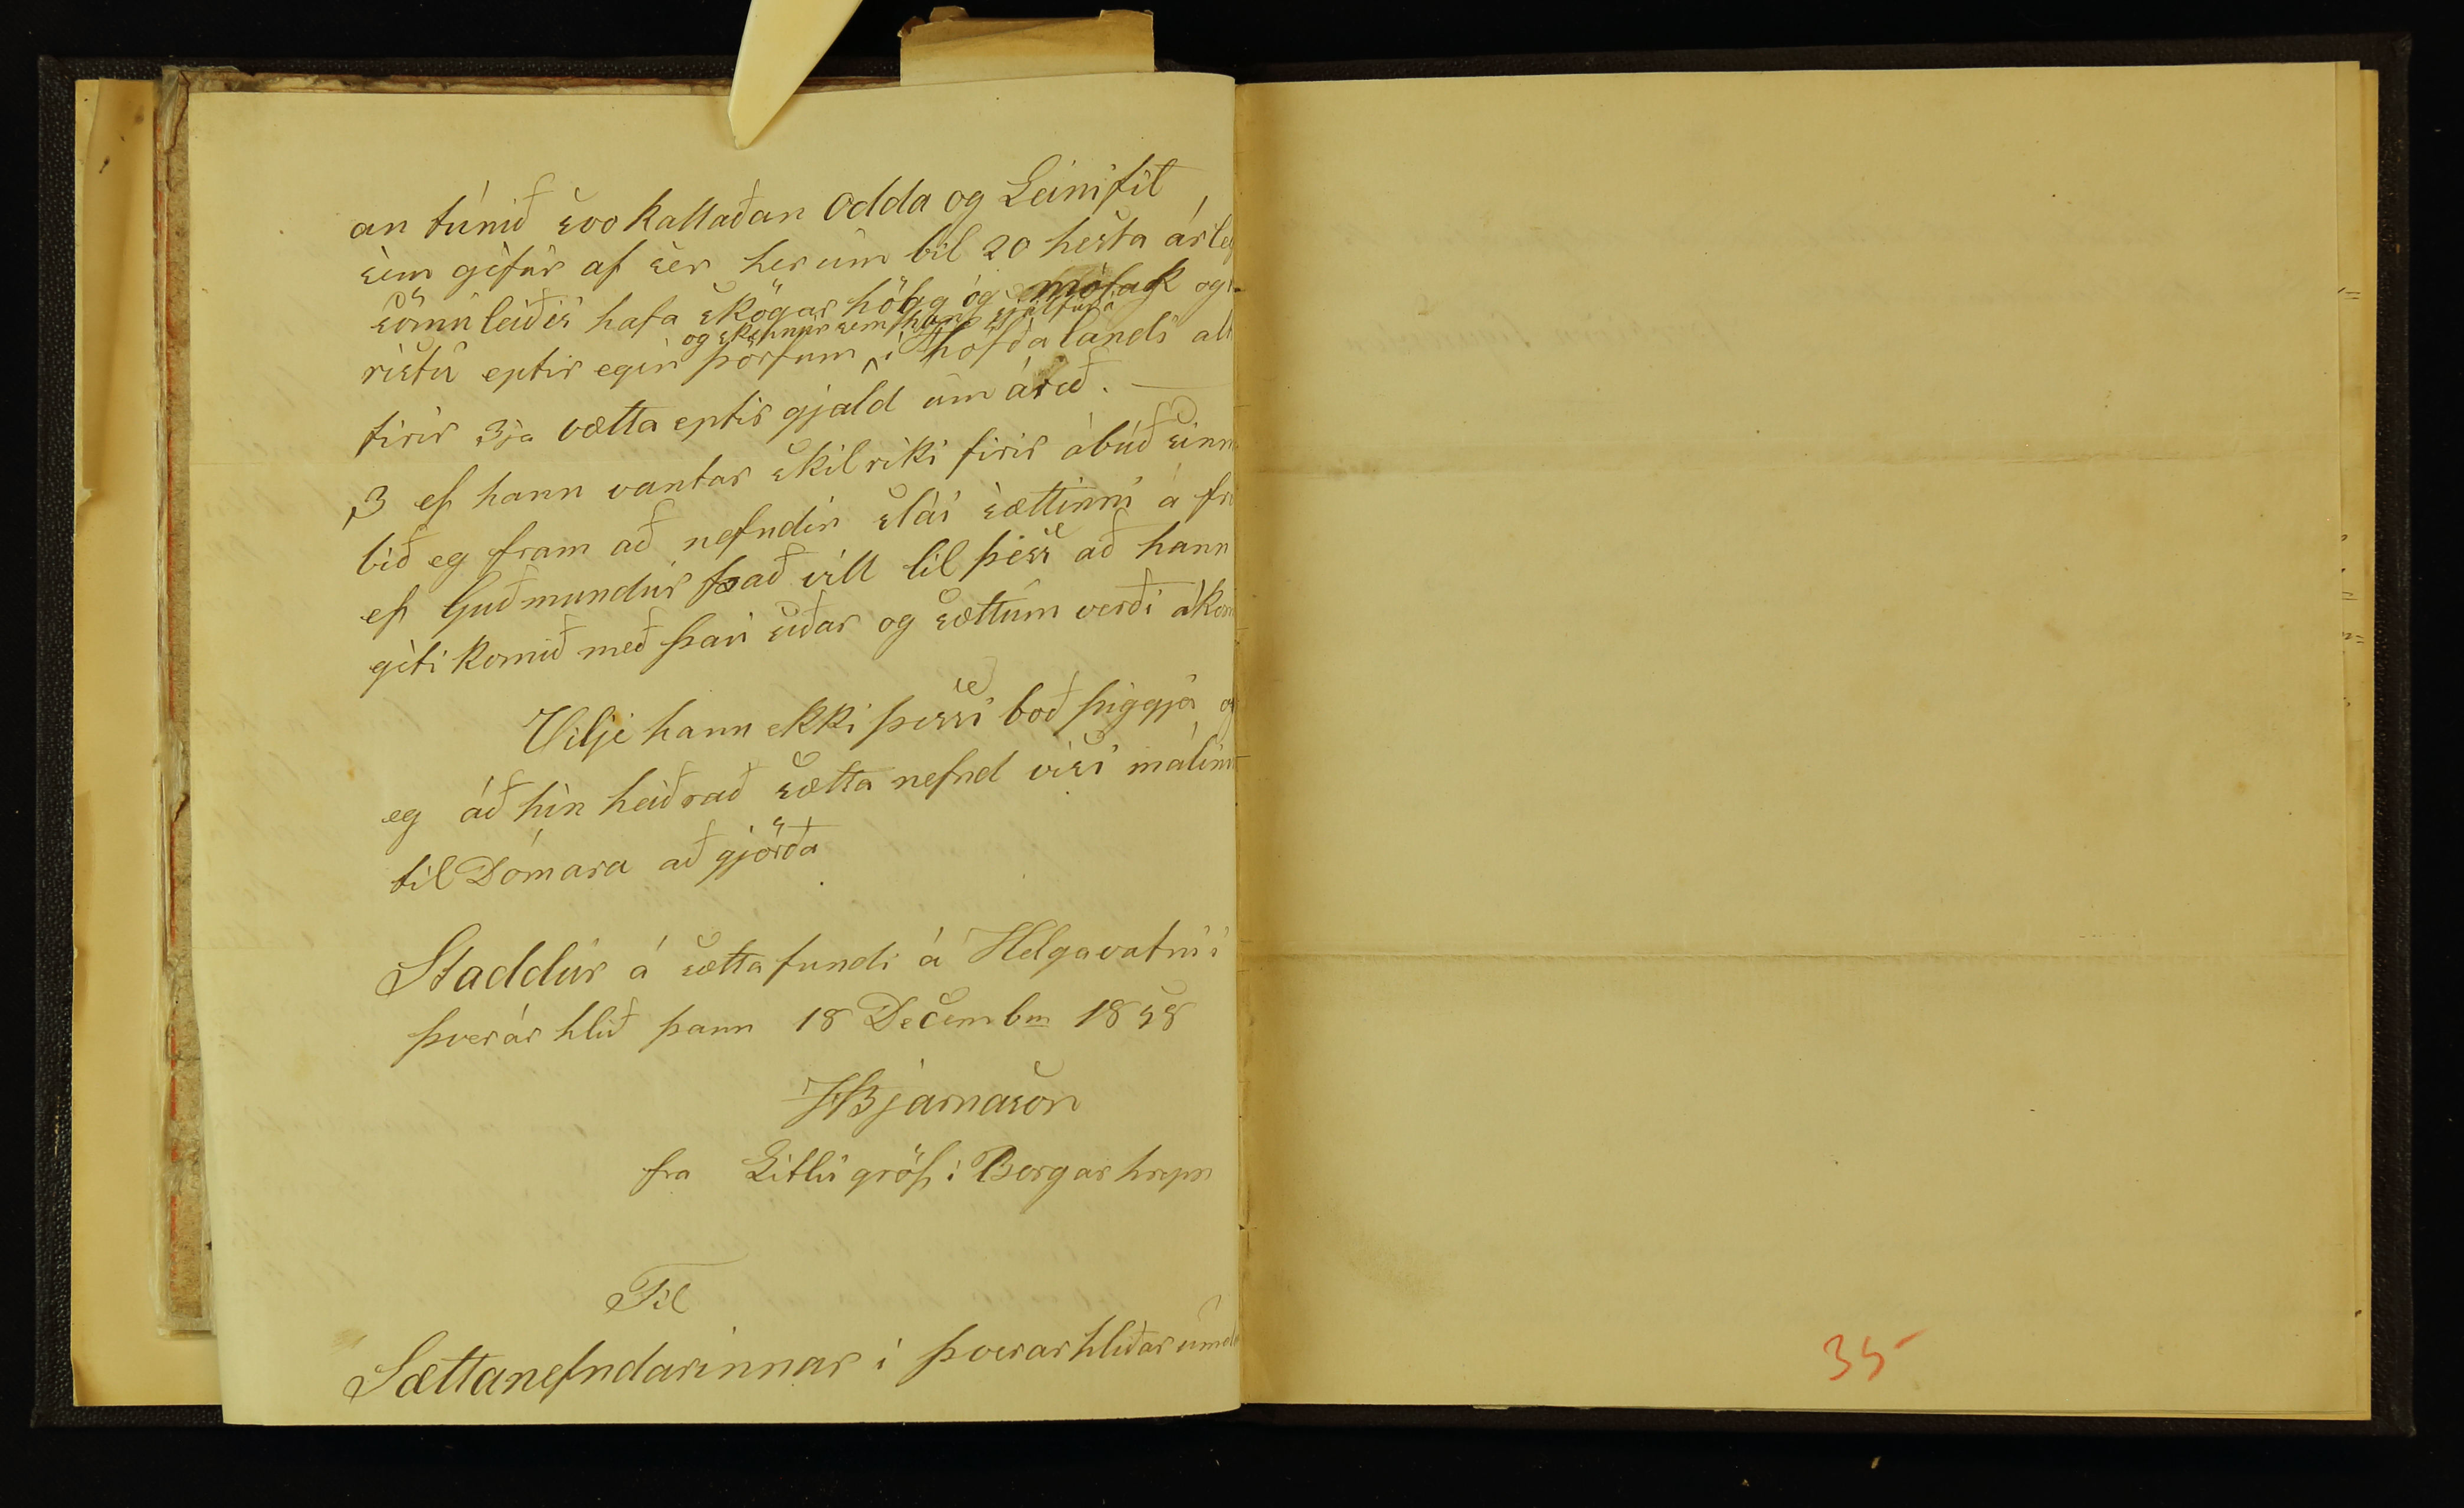 an túnið svo kallaðan Odda og Leinifit
sem géfur af sèr her um bil 20 hesta árleg
sömúleiðis hafa skógar högg og mótak og
og skepnur sem hans sjálfur á
ristu eptir egin þörfum í höfðalandi alt
firir 3ja vætta eptir gjald um árið. —
3 ef hann vantar skilriki firir ábúð sinn
bið eg fram að nefndin slái sættinni á fr
ef Guðmundur það vill til þess að hann
géti komið með þaú siðar og sættum verði ákom
Vilji hann ekki þessi boð þiggja og
eg áð hin heiðrað sætta nefnd visi málinu
til Dómara að gjörða
Staddúr á sættafundi á Helgavatni i
þverár hlið þann 18 Decembm 1858
HBjarnason
fra Litlu gröf i Borgar hrepp
Til
Sættanefndarinnar i þverarhliðar umd
35